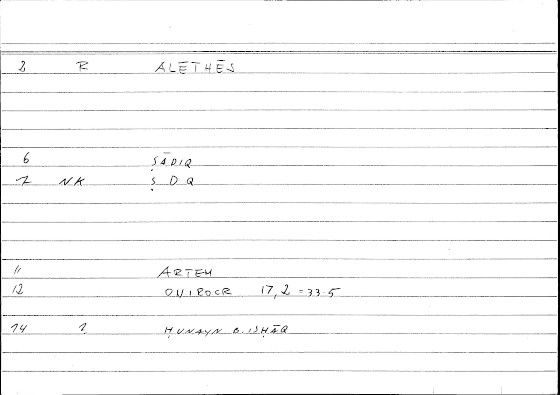 2 R ALĒTHĒS
6 ṢĀDIQ
7 NK Ṣ D Q
11 ARTEM
12 ONIROCR 17,2 = 33.5
14 1 ḤUNAYN B. ISḤĀQ